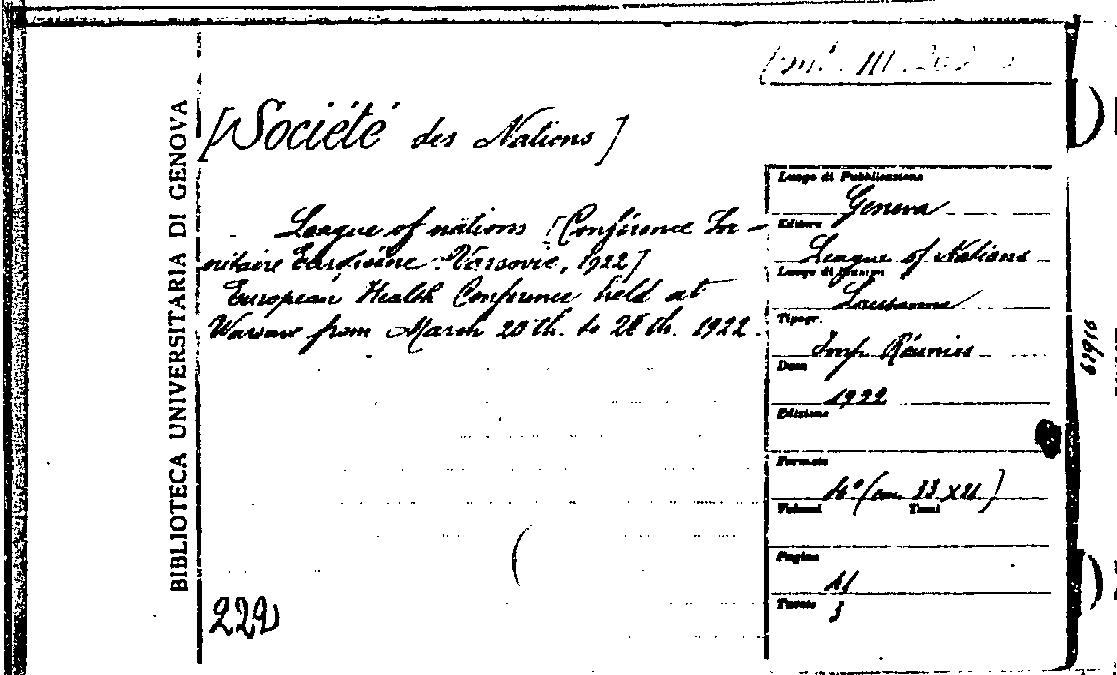 BIBLIOTECA UNIVERSITARIA DI GENOVA
[Société des Nations]
League of nations [Conférence Sa-
nitaire Européene. Varsovie, 1922]
European Health Conference held at
Warsaw from March 20th. to 28th. 1922.
222
Luogo di Pubblicazione
Geneva
Editore
League of Nations
Luogo di Stampa
Lausanne
Tipogr.
Imp. Réunies
Data
1922
Edizione
Formato
4° (cm. 33 x 21)
Volumi Tomi
Pagine
Tavole
3